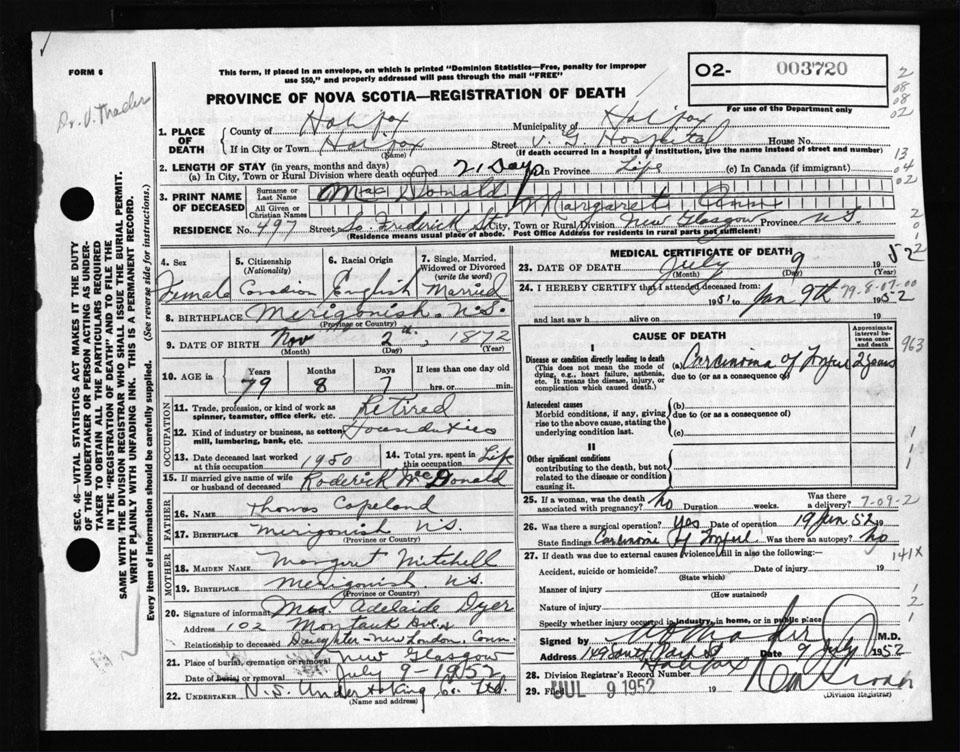 FORM 6
Dr. V. Mader
This form, if placed in an envelope, on which is printed "Dominion Statistics—Free, penalty for improper
use $50," and properly addressed will pass through the mail "FREE"
PROVINCE OF NOVA SCOTIA—REGISTRATION OF DEATH
O2- 003720
For use of the Department only
2
08
08
02
13
04
02
1. PLACE OF DEATH County of Halifax Municipality of Halifax
If in City or Town Halifax Street V. G. Hospital House No.
(Name) (If death occurred in a hospital of institution, give the name instead of street and number)
2. LENGTH OF STAY (in years, months and days)
(a) In City, Town or Rural Division where death occurred 21 Days In Province Life (c) In Canada (if immigrant)
3. PRINT NAME OF DECEASED Surname or Last Name MacDonald
All Given or Christian Names Margaret Ann
RESIDENCE No. 497 Street So. Frederick St City, Town or Rural Division New Glasgow Province N.S.
(Residence means usual place of abode. Post Office Address for residents in rural parts not sufficient)
SEC. 46—VITAL STATISTICS ACT MAKES IT THE DUTY
OF THE UNDERTAKER OR PERSON ACTING AS UNDER-
TAKER TO OBTAIN ALL THE PARTICULARS REQUIRED
IN THE "REGISTRATION OF DEATH" AND TO FILE THE
SAME WITH THE DIVISION REGISTRAR WHO SHALL ISSUE THE BURIAL PERMIT.
WRITE PLAINLY WITH UNFADING INK. THIS IS A PERMANENT RECORD.
Every item of information should be carefully supplied. (See reverse side for instructions.)
4. Sex Female
5. Citizenship (Nationality) Canadian
6. Racial Origin English
7. Single, Married, Widowed or Divorced (write the word) Married
8. BIRTHPLACE Merigonish, N.S.
(Province or Country)
9. DATE OF BIRTH Nov 2nd, 1872
(Month) (Day) (Year)
10. AGE in Years Months Days If less than one day
79 8 7 hrs. or min.
OCCUPATION
11. Trade, profession, or kind of work as spinner, teamster, office clerk, etc. Retired
12. Kind of industry or business, as cotton mill, lumbering, bank, etc.
13. Date deceased last worked at this occupation 1950
14. Total yrs. spent in this occupation Life
15. If married give name of wife or husband of deceased Roderick MacDonald
FATHER
16. NAME Thomas Copeland
17. BIRTHPLACE Merigonish N.S.
(Province or Country)
MOTHER
18. MAIDEN NAME Margret Mitchell
19. BIRTHPLACE Merigonish. N.S.
(Province or Country)
20. Signature of informant Mrs Adelaide Dyer
Address 102 Montauk
Relationship to deceased Daughter - New London, Conn.
21. Place of burial, cremation or removal New Glasgow
Date of burial or removal July 9 - 1952
22. UNDERTAKER N.S. Undertaking Co. Ltd.
(Name and address)
MEDICAL CERTIFICATE OF DEATH
23. DATE OF DEATH July 9 1952
(Month) (Day) (Year)
24. I HEREBY CERTIFY that I attended deceased from:
1951 to Jan 9th 1952
79-8-07-00
and last saw h alive on 19
CAUSE OF DEATH
Approximate interval between onset and death
I
Disease or condition directly leading to death
(This does not mean the mode of dying, e.g., heart failure, asthenia, etc. It means the disease, injury, or complication which caused death.)
(a) Carcinoma of 2 years
due to (or as a consequence of)
963
Antecedent causes
Morbid conditions, if any, giving rise to the above cause, stating the underlying condition last.
(b)
due to (or as a consequence of)
(c)
II
Other significant conditions
contributing to the death, but not related to the disease or condition causing it.
25. If a woman, was the death associated with pregnancy? No Duration weeks. Was there a delivery?
7-09-2
26. Was there surgical operation? Yes Date of operation 19 Jun 52 19
State findings Carcinoma of Was there an autopsy? No
27. If death was due to external causes (violence) fill in also the following:—
141X
Accident, suicide or homicide? Date of injury 19
(State which)
Manner of injury
(How sustained)
Nature of injury
Specify whether injury occurred in industry, in home, or in public place
Signed by Mader M.D.
Address 149 South Park St Date 9 July 1952
Halifax
28. Division Registrar's Record Number
29. Filed JUL 9 1952 19
(Division Registrar)